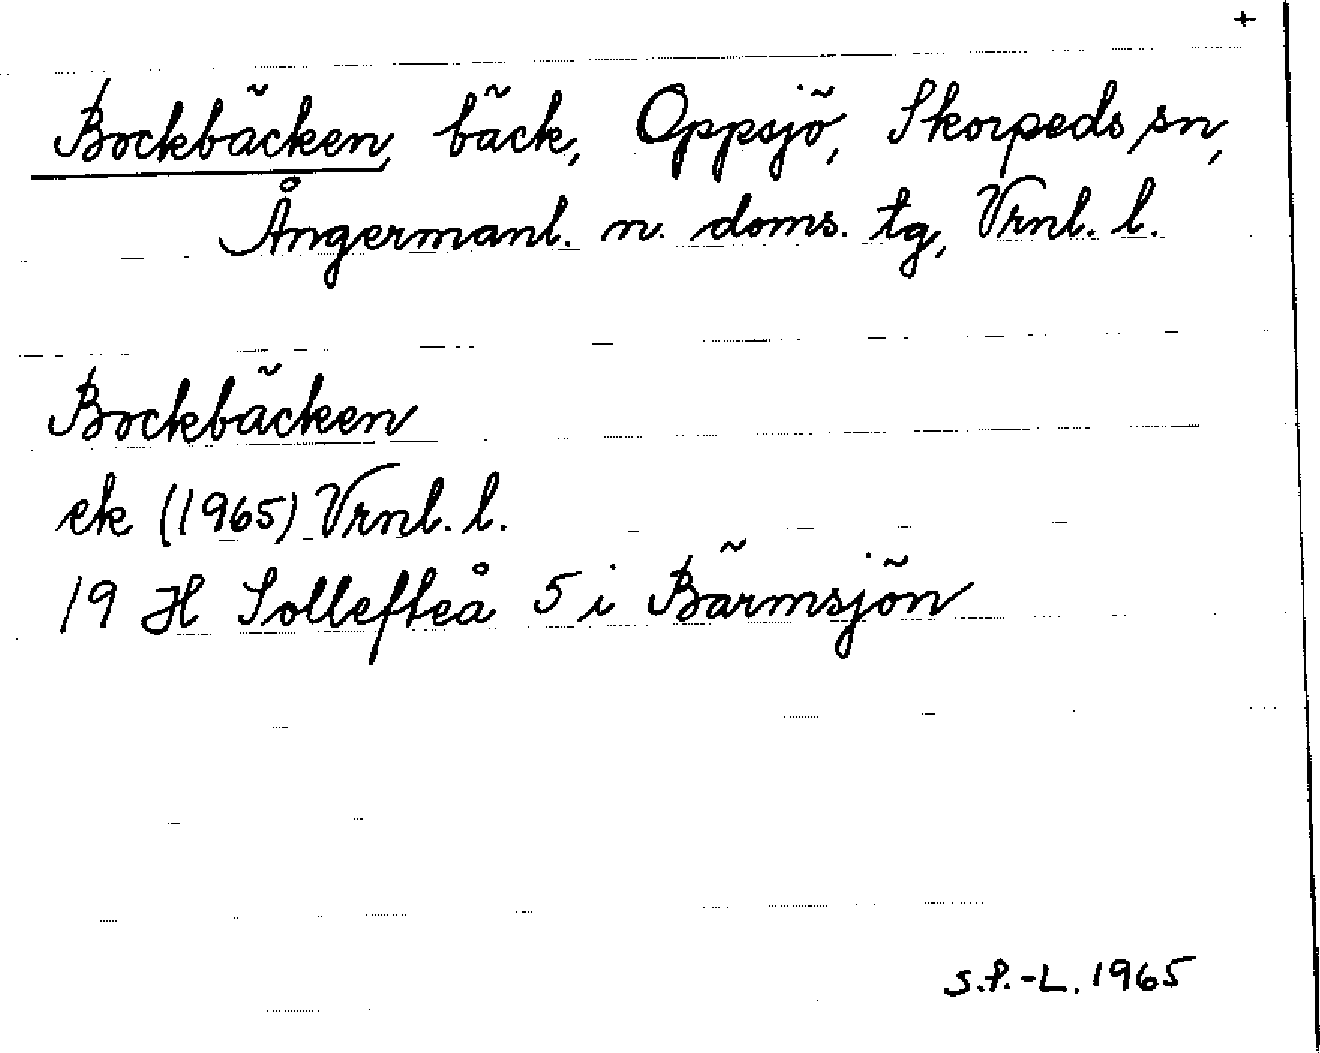 +
Bockbäcken, bäck, Oppsjö, Skorpeds sn,
Ångermanl. n. doms. tg, Vrnl. l.
Bockbäcken
ek (1965) Vrnl. l.
19 H Sollefteå 5 i Bärmsjön
S.P.-L. 1965